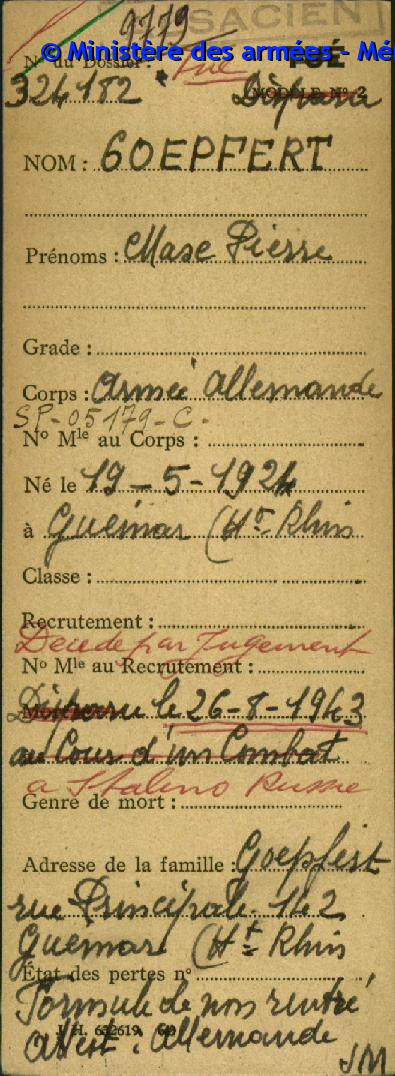 9779 ALSACIEN
© Ministère des armées - Mé
N° du Dossier : Tué TUÉ
324182 Disparu MODÈLE N° 2
NOM : GOEPFERT
Prénoms : Marc Pierre
Grade :
Corps : Armée Allemande
SP-05179-C-
N° Mle au Corps :
Né le 19-5-1924
à Guémar (Ht Rhin
Classe :
Recrutement :
Décédé par Jugement
N° Mle au Recrutement :
Disparu le 26-8-1943
au Cours d'un Combat
a Stalino Russie
Genre de mort :
Adresse de la famille : Goepfert
rue Principale 142
Guémar (Ht Rhin
État des pertes n°
Formule de non rentré
J. H. 632619
Attest. Allemande
JM